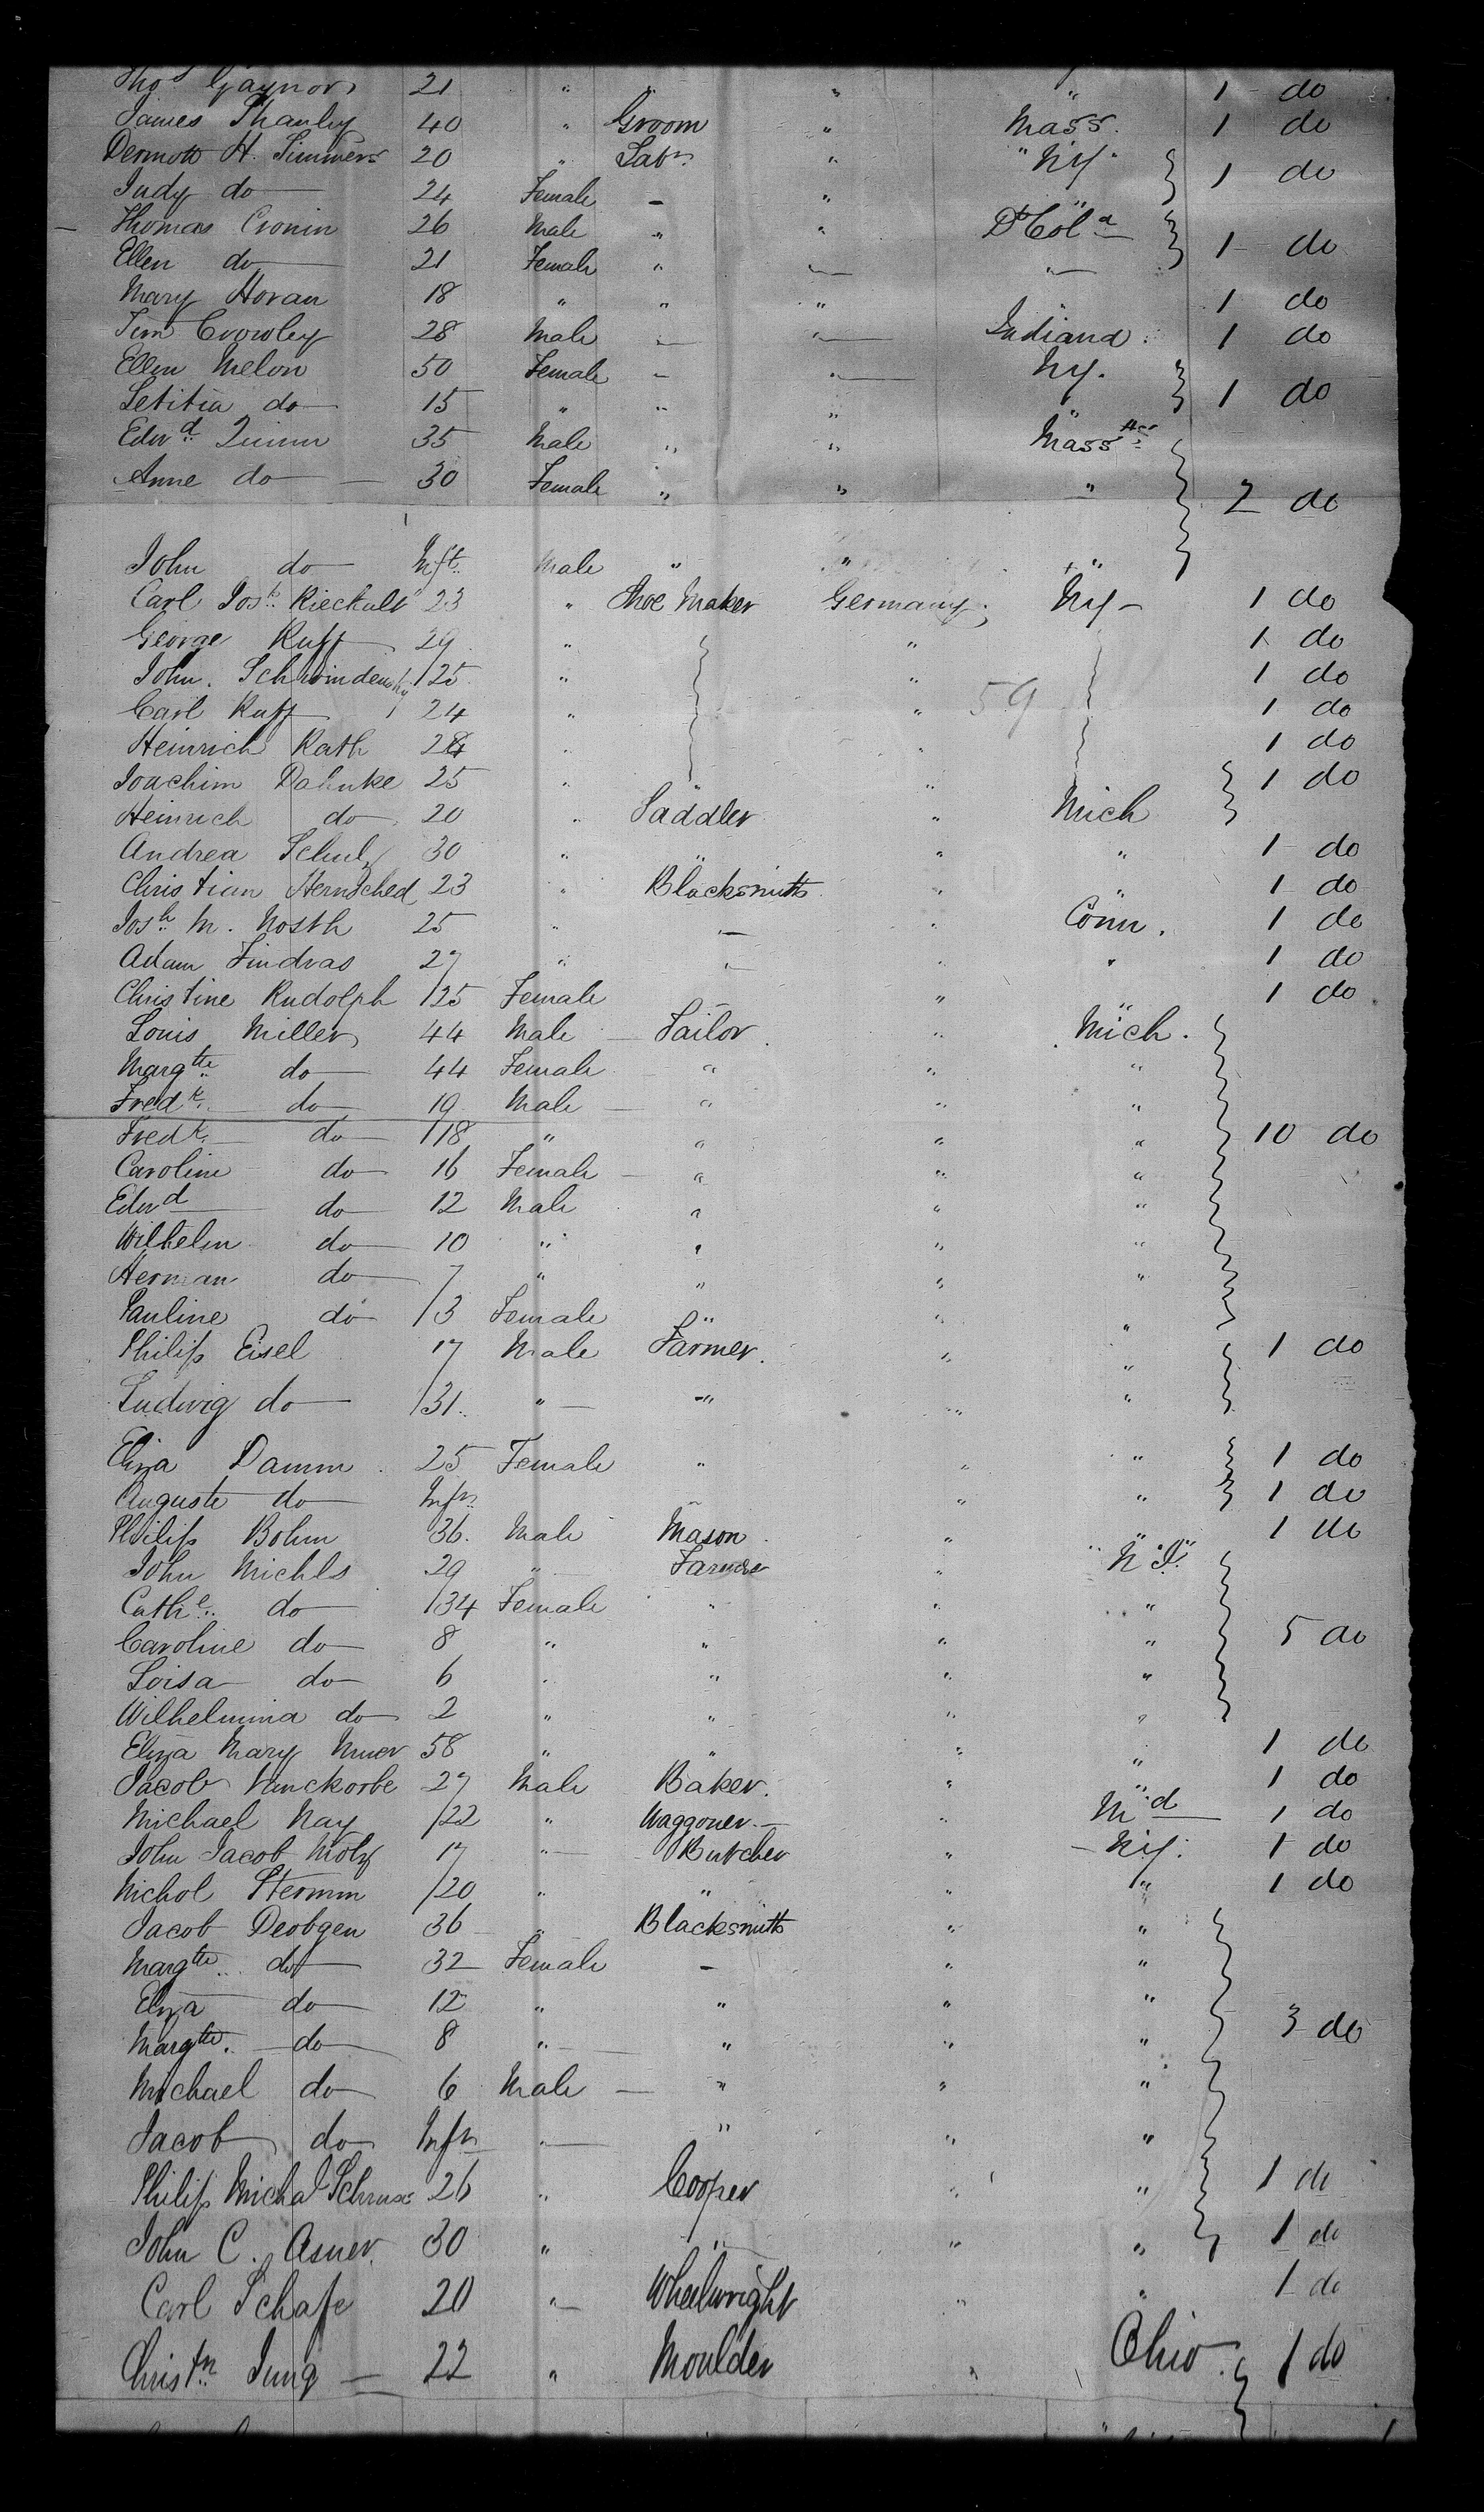 Thos Gaynor 21 " " " " 1 do
James Shanley 40 " Groom " Mass. 1 do
Dermott H. Simmers 20 " Labr " " NY. " 1 do
Judy do 24 Female - "
Thomas Cronin 26 Male " " D. Cola 1 do
Ellen do 21 Female " " "
Mary Horan 18 " " " 1 do
Tim Crowley 28 Male " " Indiana. 1 do
Ellen Melon 50 Female " " NY. 1 do
Letitia do 15 " " " "
Edwd Quinn 35 Male " " Mass
Anne do 30 Female " " " 2 do
John do Inft. Male " " "
Carl Josh. 23 " Shoe Maker Germany, NY- 1 do
George Ruff 29 " " 1 do
John. 25 " " 1 do
Carl Ruff 24 " " 59 1 do
Heinrich Rath " " 1 do
Joachim Dahnke 25 " " 1 do
Heinrich do 20 " Saddler " Mich
Andrea Schulz 30 " " " " 1 do
Christian 23 " Blacksmith " " 1 do
Josh. M. North 25 " " " Conn. 1 do
Adam Findras 27 " " " " 1 do
Christine Rudolph 25 Female " 1 do
Louis Miller 44 Male Tailor " Mich.
Margtte do 44 Female " " "
Fredk. do 19 Male " " "
Fredk. do 18 " " " " 10 do
Caroline do 16 Female " " "
Edwd do 12 Male " " "
Wilhelm do 10 " " " "
Herman do 7 " " " "
Pauline do 3 Female " " "
Philip Eisel 17 Male Farmer. " " 1 do
Ludwig do 31. " " " "
Eliza Damm 25 Female " " " 1 do
Auguste do Infn. " " 1 do
Philip Bohm 36. Male Mason " " 1 do
John Michls 29 " Farmer " N.J.
Cathe. do 34 Female " " "
Caroline do 8 " " " " 5 do
Loisa do 6 " " " "
Wilhelmina do 2 " " " "
Eliza Mary 58 " " " " 1 do
Jacob Vanckorbe 27 Male Baker. " " 1 do
Michael Nay 22 " Waggoner " Md 1 do
John Jacob Motz 17 " Butcher " NY. 1 do
Nichol Stermm 20 " " " " 1 do
Jacob Deobgen 36 " Blacksmith " "
Margtte. do 32 Female - " "
Eliza do 12 " " " "
Margtte. do 8 " " " " 3 do
Michael do 6 Male " " "
Jacob do Infn " " " "
Philip Michal 26 " Cooper " " 1 do
John C. Asner. 30 " " " " 1 do
Carl Schafe 20 " Wheelwright " " 1 do
Christn. Jung 22 " Moulder " Ohio. 1 do